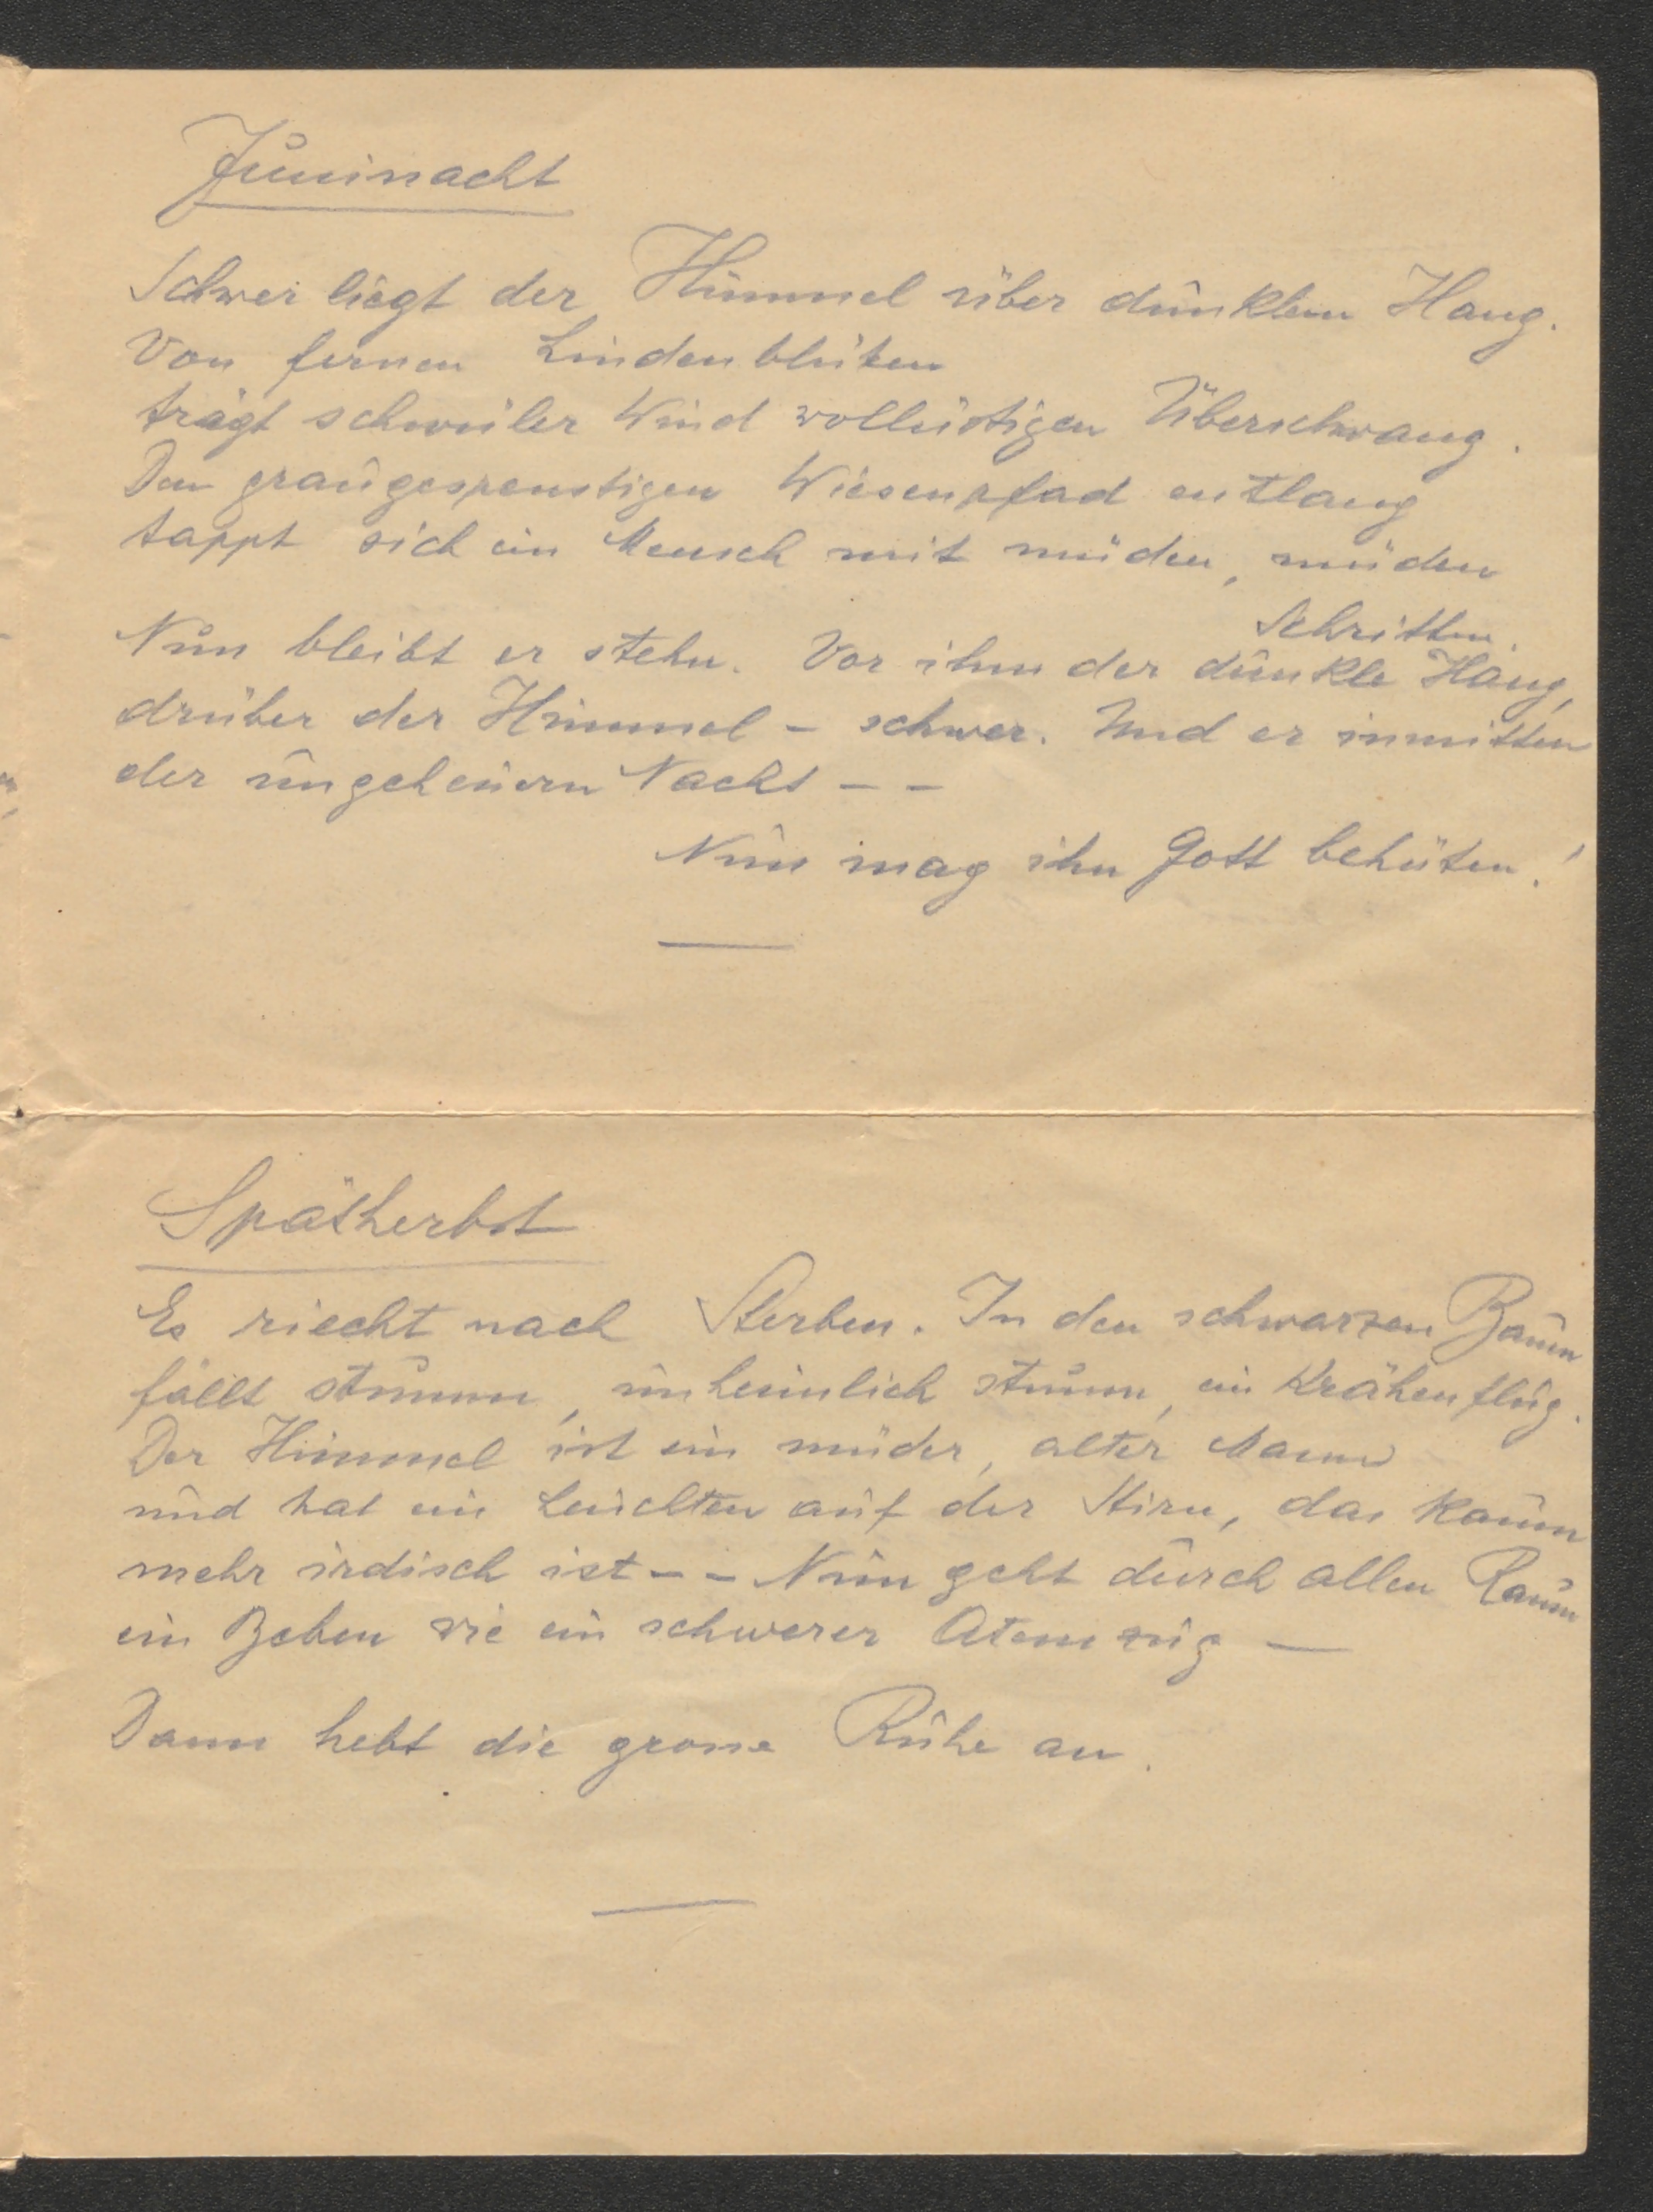 Juninacht
Schwer liegt der Himmel über dunklem Hang.
Von fernen Lindenblüten
trägt schwüler Wind wollüstigen Überschwang.
Den graugespenstigen Wiesenpfad entlang
tappt sich ein Mensch mit müden, müden
Schritten.
Nun bleibt er stehn. Vor ihm der dunkle Hang,
drüber der Himmel - schwer. Und er inmitten
der ungeheuern Nacht - -
Nun mag ihn Gott behüten!
Spätherbst
Es riecht nach Sterben. In den schwarzen Baum
fällt stumm, unheimlich stumm, ein Krähenflug.
Der Himmel ist ein müder, alter Mann
und hat ein Leuchten auf der Stirn, das kaum
mehr irdisch ist - - Nun geht durch allen Raum
ein Beben wie ein schwerer Atemzug —
Dann hebt die grosse Ruhe an.